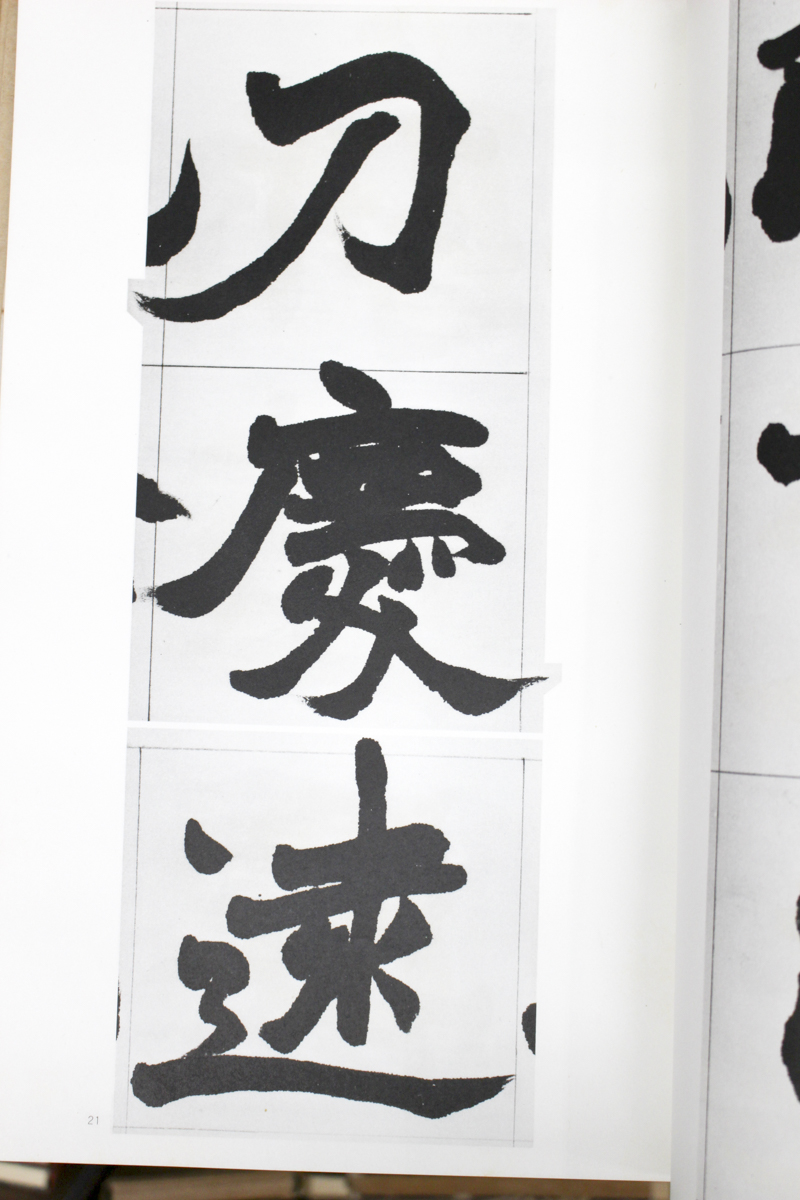 刀
慶
逮
21